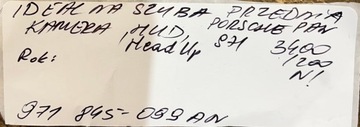 IDEALNA SZYBA PRZEDNIA
KAMERA, HUD, PORSCHE PAN
Head Up 971 3400
Rok: 1200
N!
971 845-099 AN